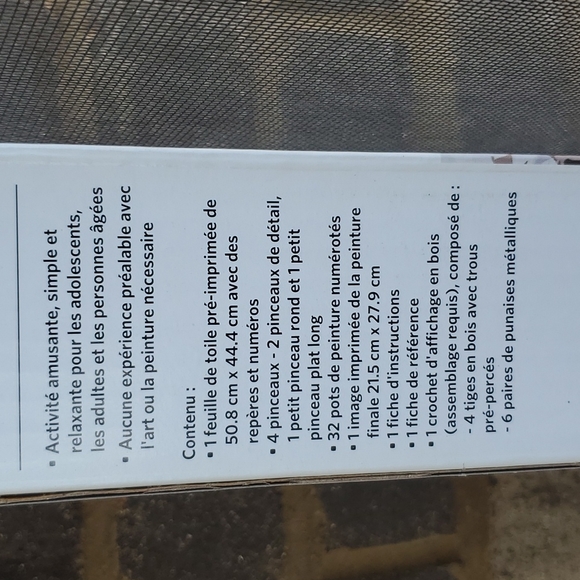 • Activité amusante, simple et
relaxante pour les adolescents,
les adultes et les personnes âgées
• Aucune expérience préalable avec
l'art ou la peinture nécessaire
Contenu :
• 1 feuille de toile pré-imprimée de
50.8 cm x 44.4 cm avec des
repères et numéros
• 4 pinceaux - 2 pinceaux de détail,
1 petit pinceau rond et 1 petit
pinceau plat long
• 32 pots de peinture numérotés
• 1 image imprimée de la peinture
finale 21.5 cm x 27.9 cm
• 1 fiche d'instructions
• 1 fiche de référence
• 1 crochet d'affichage en bois
(assemblage requis), composé de :
- 4 tiges en bois avec trous
pré-percés
- 6 paires de punaises métalliques